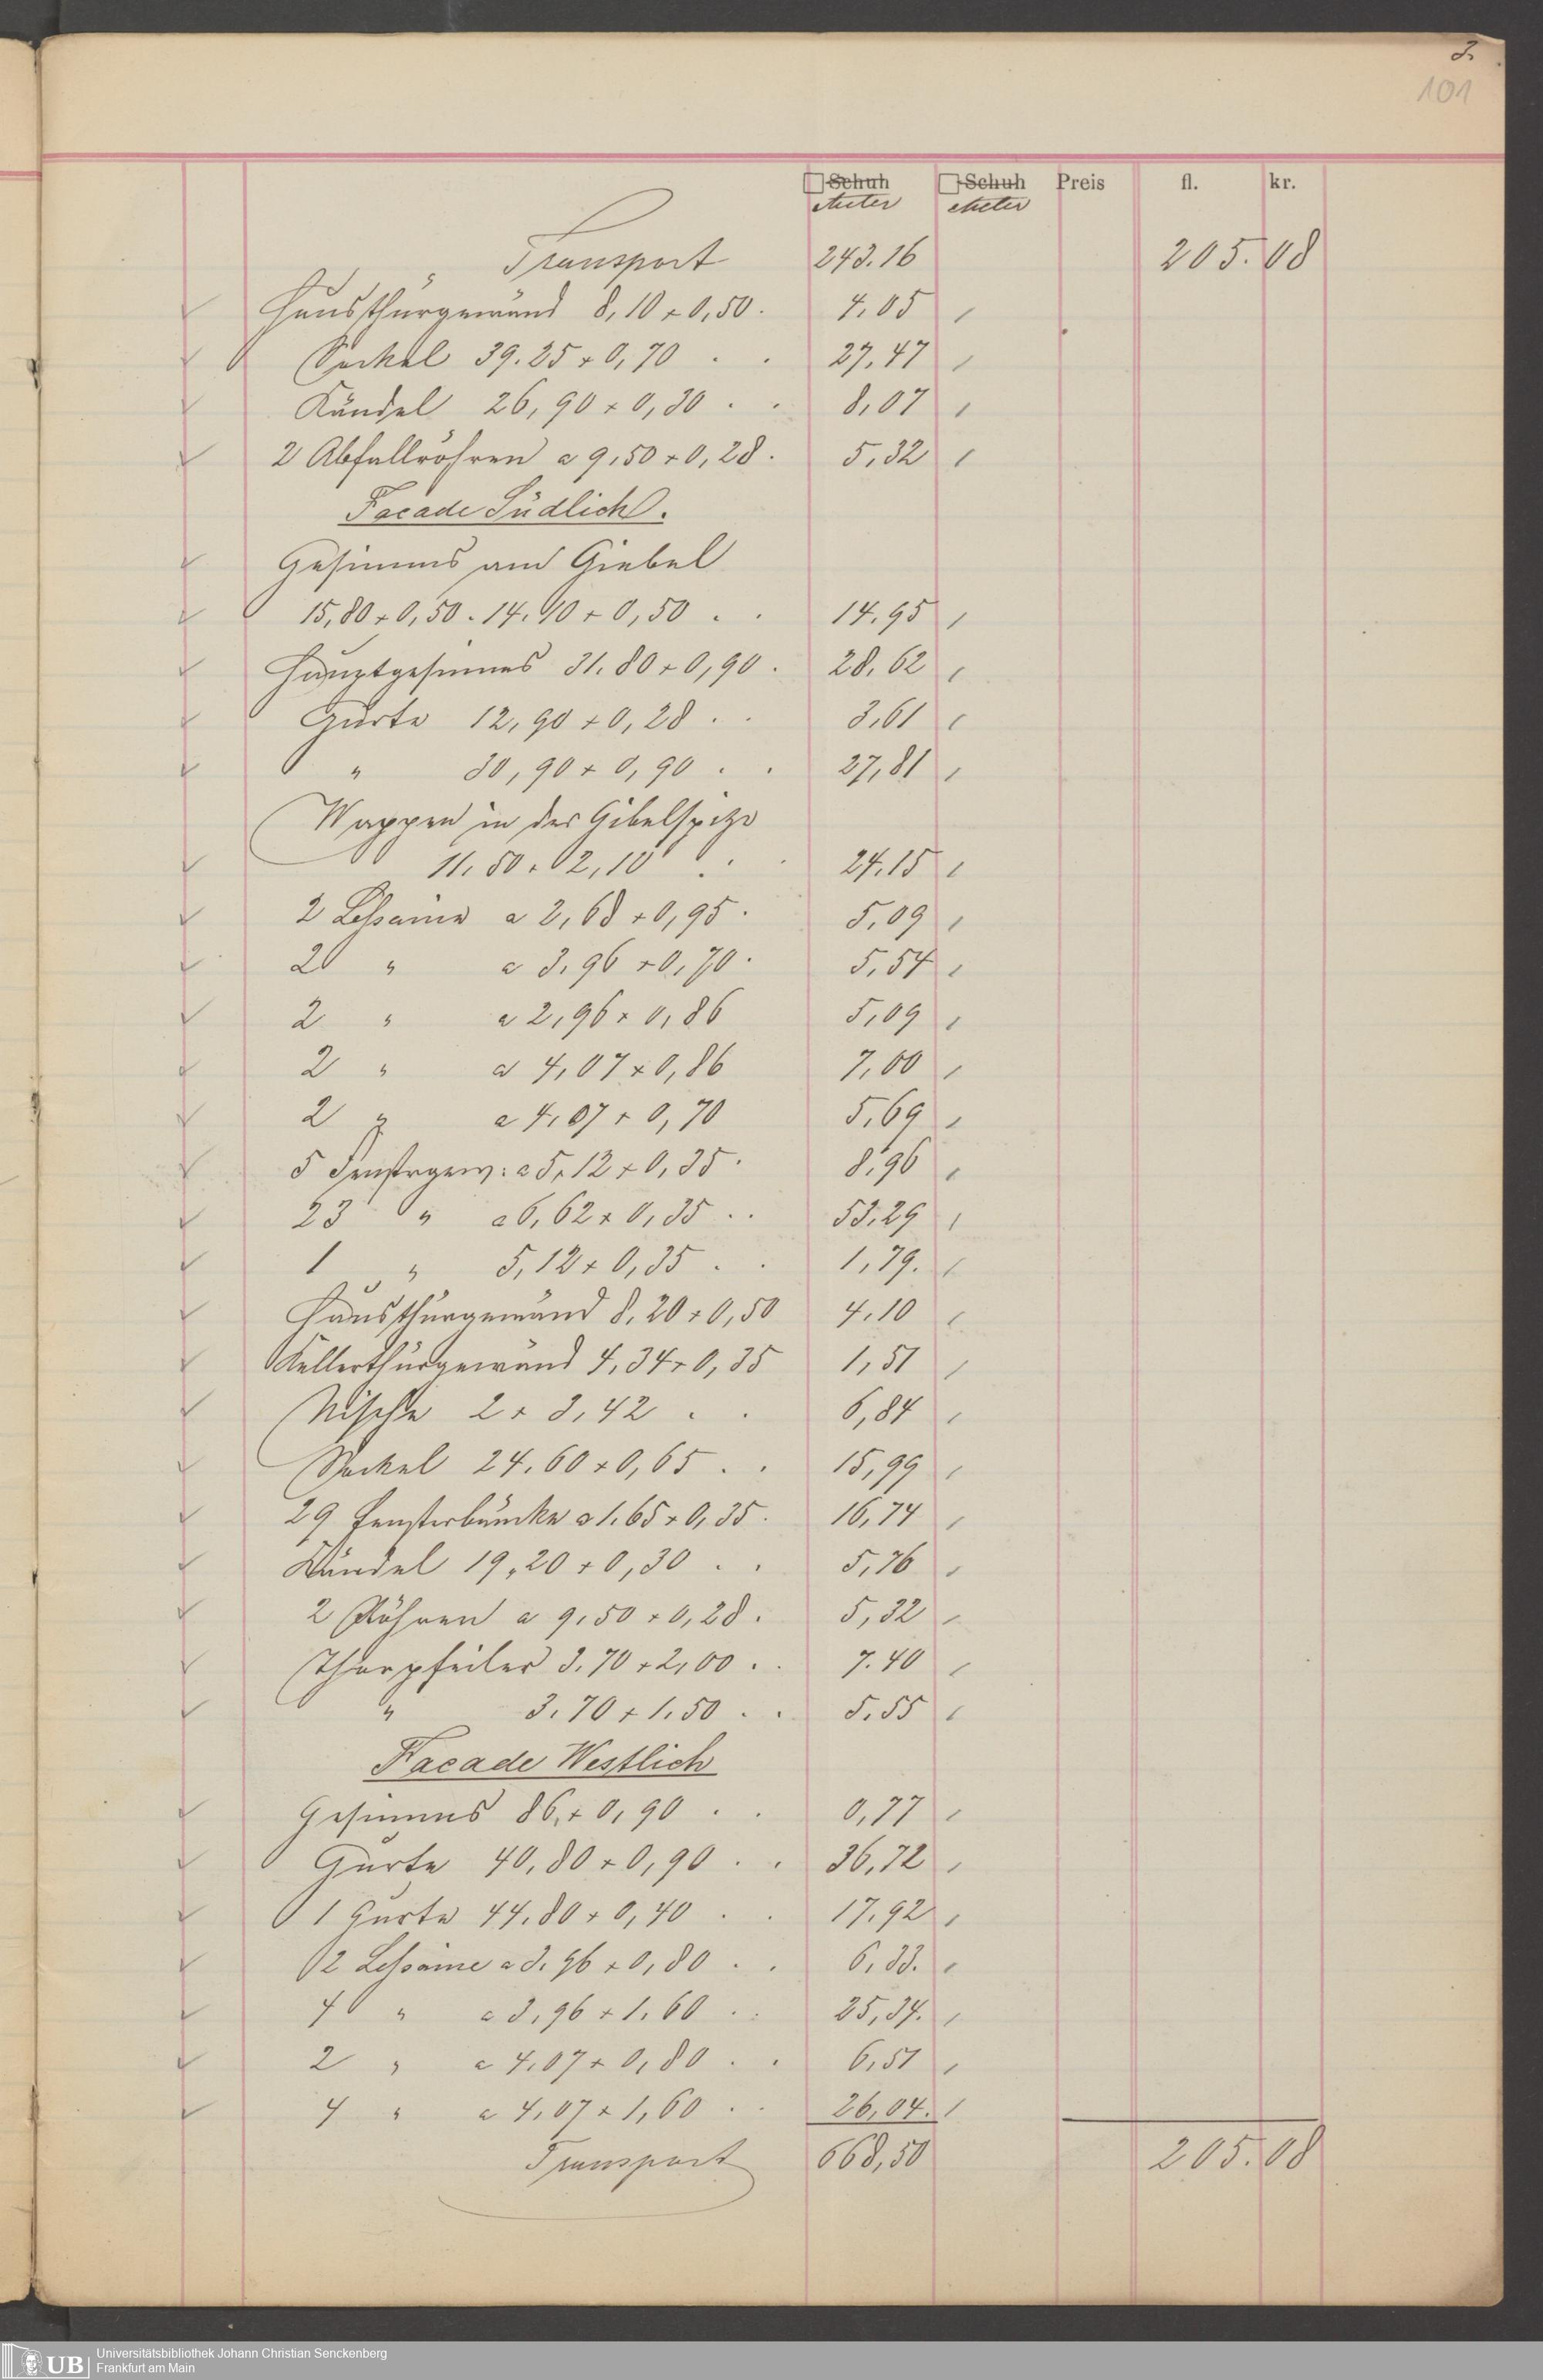 3.
101
□ Schuh □ Schuh Preis fl. kr.
Meter Meter
Transport 243.16 205.08
Hausthürgewänd 8,10 + 0,50. 4,05
Sockel 39.25 + 0,70 . . 27,47
Kändel 26,90 + 0,30 . . 8,07
2 Abfallröhren a 9,50 + 0,28. 5,32
Facade Südlich.
Gesimms am Giebel
15,80 + 0,50. 14.10 + 0,50 . . 14,95
Hauptgesimms 31.80 + 0,90. 28,62
Gurte 12,90 + 0,28 . . 3,61
" 30,90 + 0,90 . . 27,81
Wappen in der Gibelspitze
11,50 + 2,10 . . 24,15
2 Lessaine a 2,68 + 0,95. 5,09
2 " a 3,96 + 0,70. 5,54
2 " a 2,96 + 0,86 5,09
2 " a 4,07 + 0,86 7,00
2 " a 4,07 + 0,70 5,69
5 Fenstrgew: a 5,12 + 0,35. 8,96
23 " a 6,62 + 0,35 . . 53,29
1 " 5,12 + 0,35 . . 1,79.
Hausthürgewänd 8,20 + 0,50 4,10
Kellerthürgewänd 4,34 + 0,35 1,51
Nische 2 + 3,42 . . 6,84
Sockel 24,60 + 0,65 . . 15,99
29 Fensterbänke a 1,65 + 0,35. 16,74
Kändel 19,20 + 0,30 . . 5,76
2 Röhren a 9,50 + 0,28. 5,32
Thorpfeiler 3.70 + 2,00 . . 7.40
" 3.70 + 1.50 . . 5,55
Facade Westlich
Gesimms 86, + 0,90 . . 0,77
Gurte 40,80 + 0,90 . . 36,72
1 Gurte 44,80 + 0,40 . . 17,92
2 Lessaine a 3,96 + 0,80 . . 6,33.
4 " a 3,96 + 1,60 . . 25,34.
2 " a 4,07 + 0,80 . . 6,51
4 " a 4,07 + 1,60 . . 26,04.
Transport 668,50 205.08
UB
Universitätsbibliothek Johann Christian Senckenberg
Frankfurt am Main